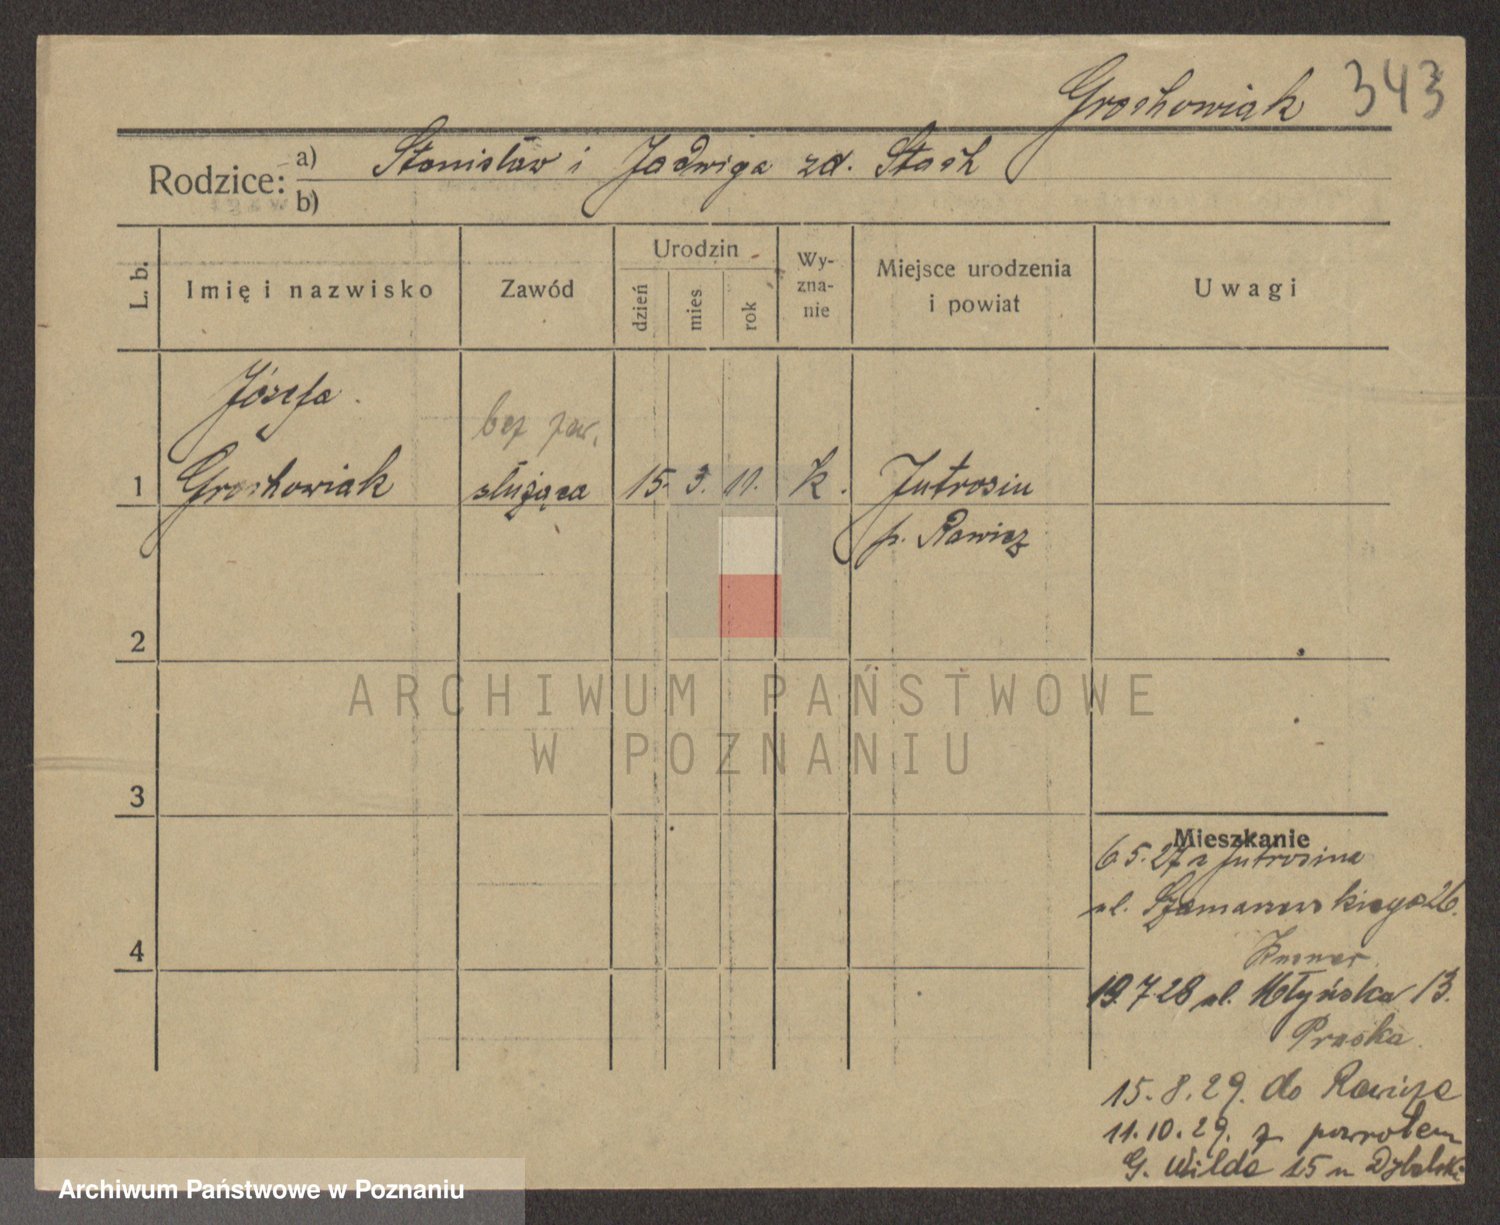 Grochowiak 343
Rodzice: a) Stanisław i Jadwiga zd. Stach
b)
L. b.
Imię i nazwisko
Zawód
Urodzin
dzień
mies
rok
Wy-
zna-
nie
Miejsce urodzenia
i powiat
Uwagi
Józefa
bez zaw.
1 Grochowiak służąca 15. 3. 11. k. Jutrosin
p. Rawicz
2
3
4
ARCHIWUM PAŃSTWOWE
W POZNANIU
Mieszkanie
6.5.27 z Jutrosina
ul. Szamarzewskiego 26.
19.7.28 ul. Młyńska 13.
Praska
15.8.29. do Rawicza
11.10.29. z powrotem
G. Wilda 15 u
Archiwum Państwowe w Poznaniu